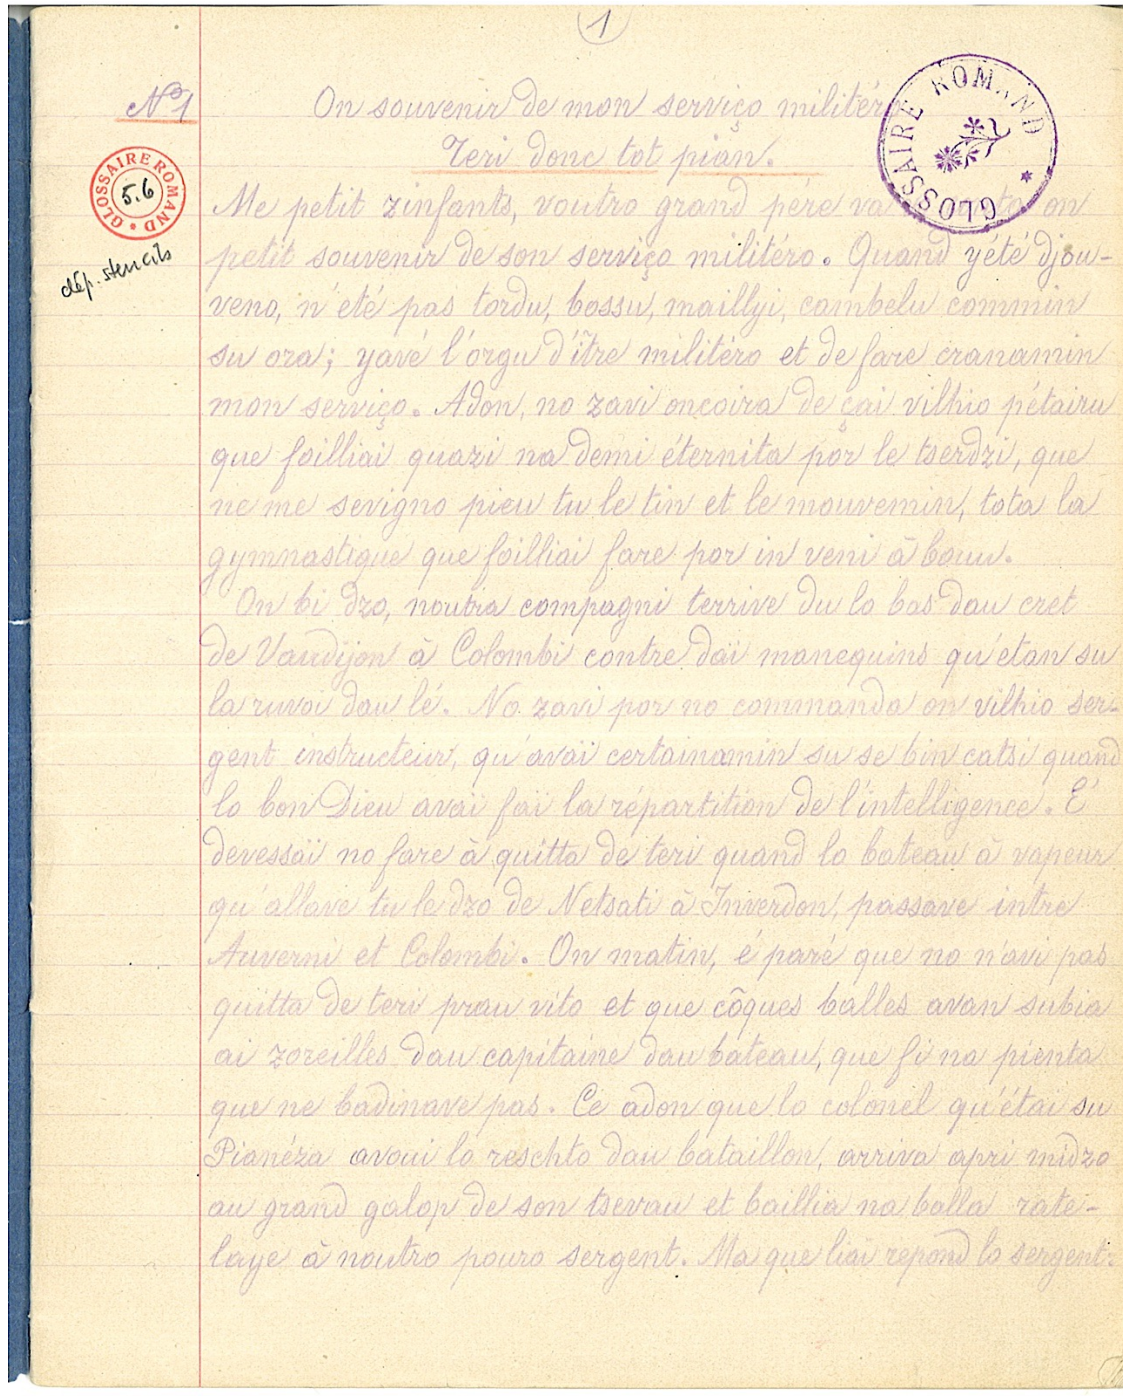 1
GLOSSAIRE ROMAND
No 1
On souvenir de mon serviço militéro
Teri donc tot pian.
GLOSSAIRE ROMAND
5.6
dép. stencils
Me petit zinfants, voutro grand pére va on
petit souvenir de son serviço militéro. Quand yété djou-
veno, n'été pas tordu, bossu, maillyi, cambelu commin
su ora; yavé l'orgu d'ître militéro et de fare cranamin
mon serviço. Adon, no zavi onçoira de çai vilhio pétairu
que foilliai quazi na demi éternita por le tserdzi, que
ne me sevigno pieu tu le tin et le mouvemin, tota la
gymnastique que foilliai fare por in veni à bouu.
On bi dzo, noutra compagni terrive du lo bas dau cret
de Vaudijon à Colombi contre daï manequins qu'étan su
la ruvoi dau lé. No zavi por no commanda on vilhio ser-
gent instructeur, qu'avaï certainamin su se bin catsi quand
lo bon Dieu avaï faï la répartition de l'intelligence. E
devessaï no fare à quitta de teri quand lo bateau à vapeur
qu'allave tu le dzo de Netsati à Inverdon, passave intre
Auverni et Colombi. On matin, é paré que no n'avi pas
quitta de teri prau vito et que côques balles avan subia
ai zoreilles dau capitaine dau bateau, que fi na pienta
que ne badinave pas. Ce adon que lo colonel qu'étai su
Pianéza avoui lo reschto dau bataillon, arriva apri midzo
au grand galop de son tsevau et baillia na balla rate-
laye à noutro pouro sergent. Ma que liai repond lo sergent: